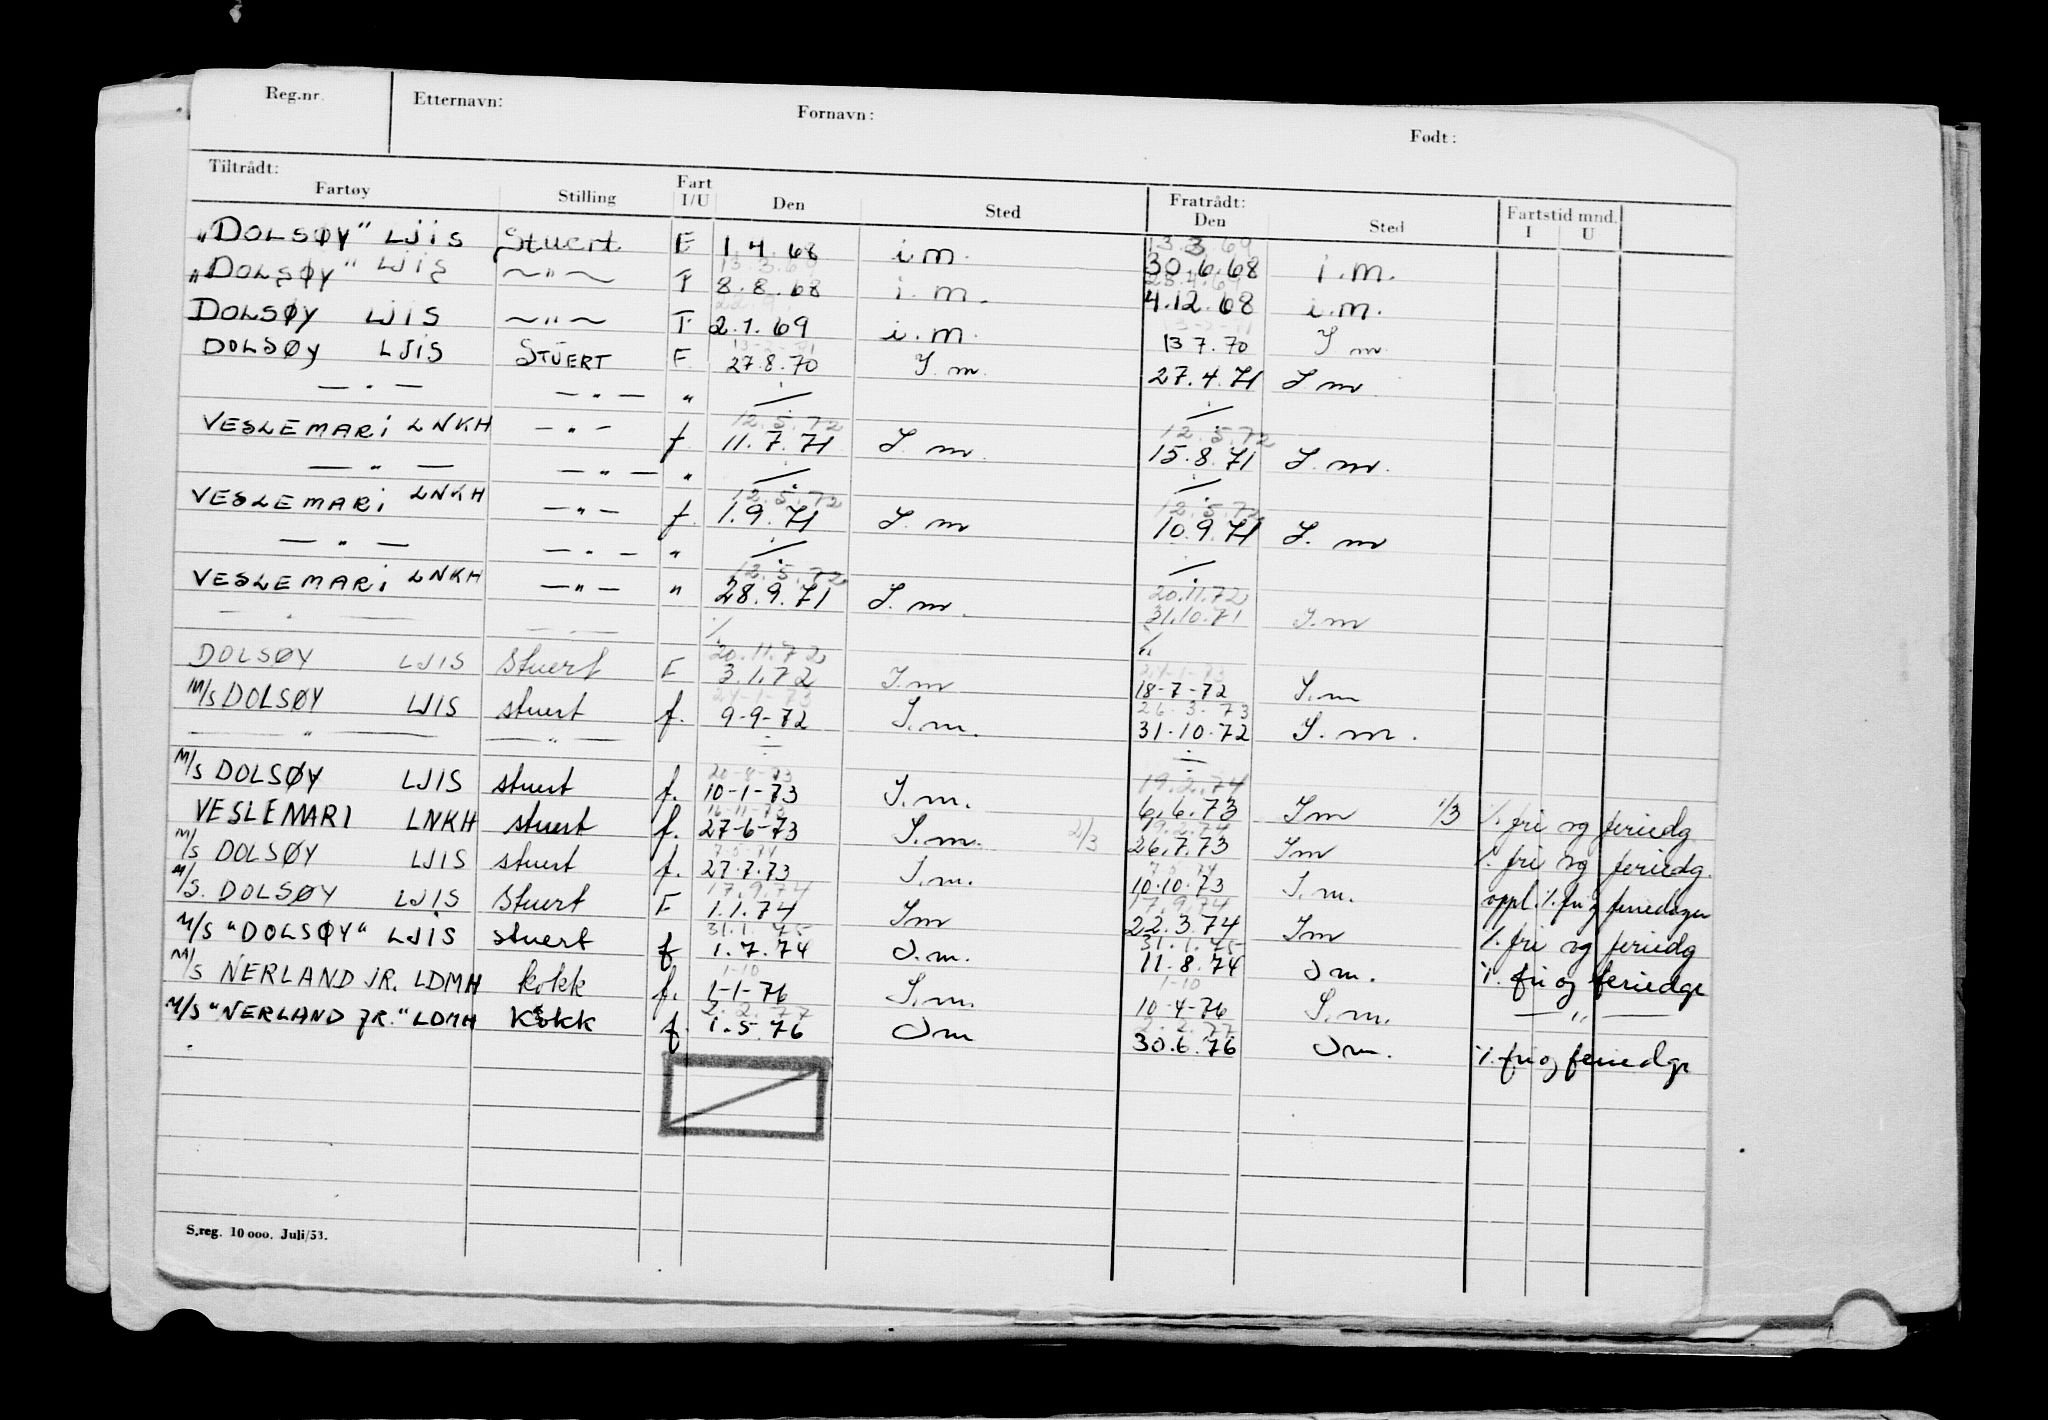 Reg.nr. Etternavn: Fornavn: Født:
Tiltrådt: Fratrådt: Fartstid mnd.
Fartøy Stilling Fart I/U Den Sted Den Sted I U
13.3.69
"DOLSØY" LJIS Stuert F 1.4.68 i.m. 30.6.68 i.m.
13.3.69 28.4.69
"DOLSØY" LJIS —"— F 8.8.68 i.m. 4.12.68 i.m.
DOLSØY LJIS —"— F 2.1.69 i.m. 13 7.70 I m
DOLSØY LJIS STUERT F. 27.8.70 I.m. 27.4.71 I.m
—"— —"— " ./. ./.
12.5.72 12.5.72
VESLEMARI LNKH —"— f 11.7.71 I.m. 15.8.71 I.m.
—"— —"— " ./. ./.
12.5.72 12.5.72
VESLEMARI LNKH —"— f. 1.9.71 I.m 10.9.71 I.m
—"— —"— " ./. ./.
12.5.72 20.11.72
VESLEMARI LNKH —"— " 28.9.71 I.m. 31.10.71 I.m
—"— —"— ./. ./.
20.11.72 24-1-73
DOLSØY LJIS Stuert F 3.1.72 I.m 18-7-72 I.m
24-1-73 26-3-73
M/S DOLSØY LJIS stuert f. 9-9-72 I.m. 31-10-72 I.m.
—"— —"— ÷ ÷
20-8-73 19.2.74
M/S DOLSØY LJIS stuert f. 10-1-73 I.m. 6.6.73 Im 1/3 ./. fri og feriedg
16-11-73 19.2.74
VESLEMARI LNKH stuert f. 27-6-73 I.m. 2/3 26.7.73 Im ./. fri og feriedg.
7-5-74 7-5-74
M/S DOLSØY LJIS stuert f. 27.7.73 I.m. 10-10.73 I.m. oppl. ./. fri og feriedager
17.9.74 17.9.74
M/S. DOLSØY LJIS Stuert F 1.1.74 Im 22.3.74 Im ./. fri og feriedg
31.1.75 31.1.75
M/S "DOLSØY" LJIS stuert f 1.7.74 I.m. 11.8.74 Im. ./. fri og feriedge
1-10 1-10
M/S NERLAND JR. LDMH kokk f. 1-1-76 I.m. 10-4-76 I.m. —"—
2.2.77 2.2.77
M/S "NERLAND JR." LDMH Kokk f. 1.5.76 Im 30.6.76 Im. ./. fri og feriedge
S.reg. 10 000. Juli/53.